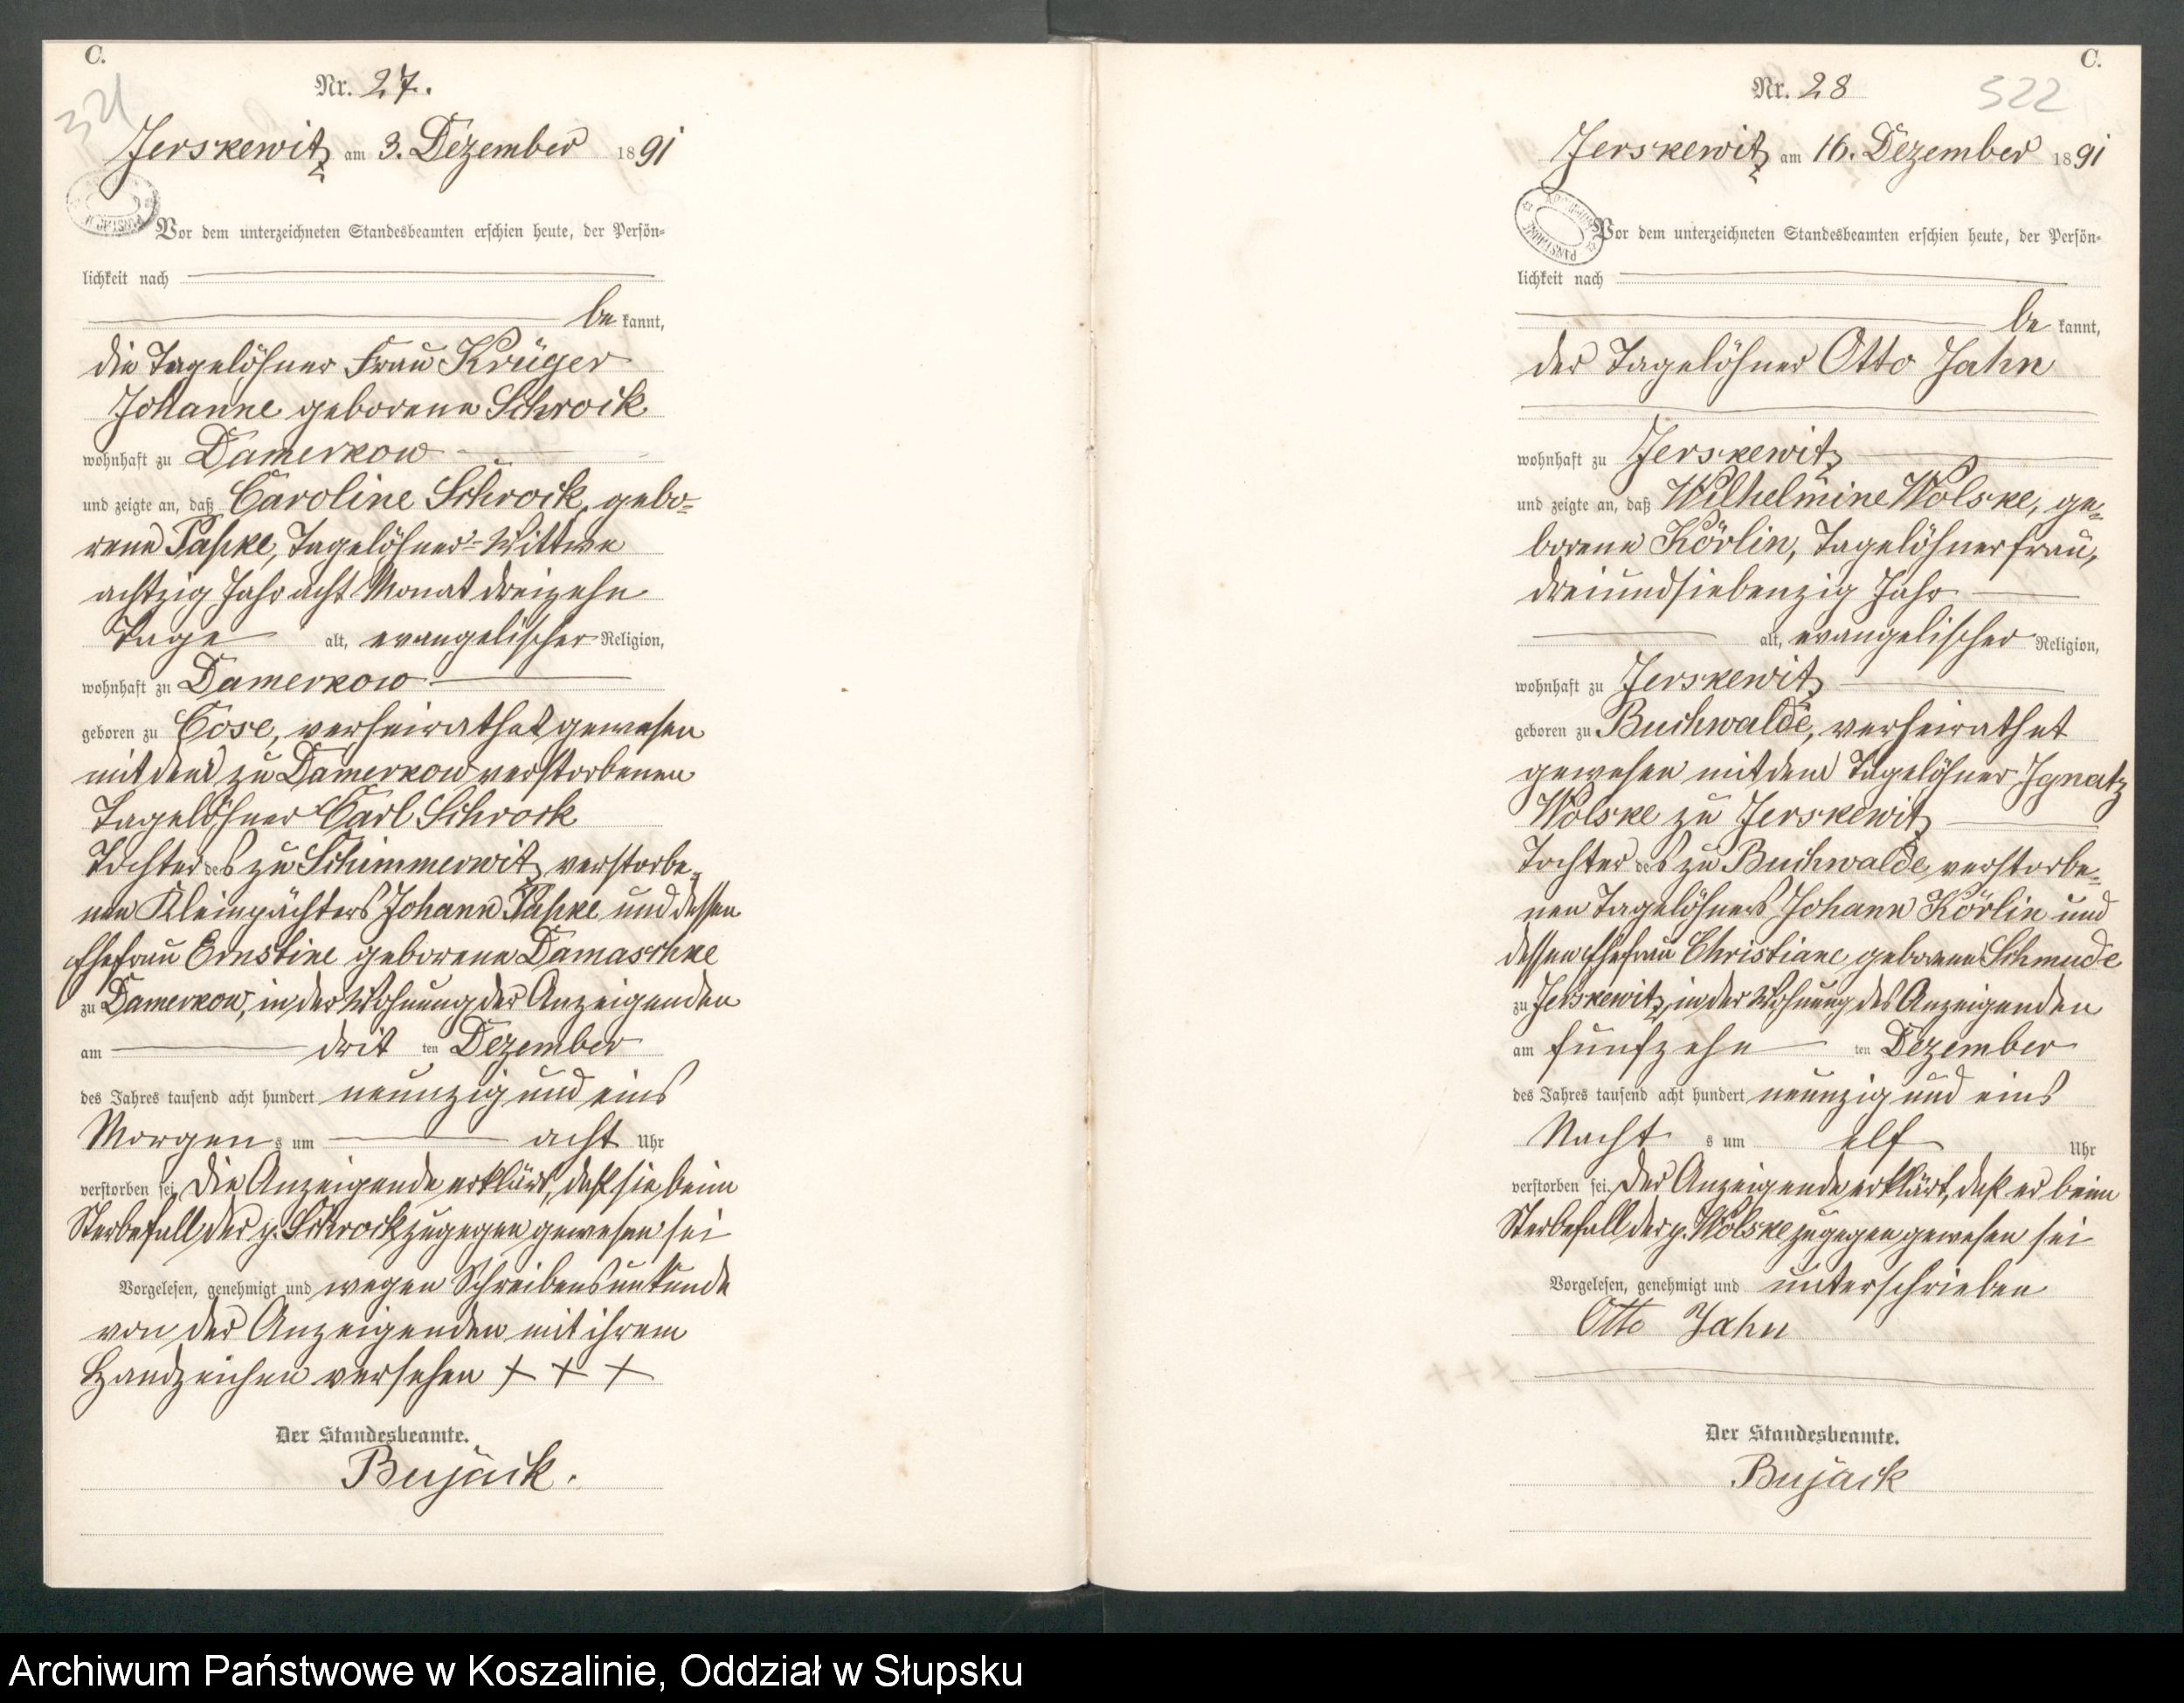 C.
321
Nr. 27.
Jerskewitz am 3. Dezember 1891
Vor dem unterzeichneten Standesbeamten erschien heute, der Persön-
lichkeit nach
be kannt,
die Tagelöhner Frau Krüger
Johanne geborene Schrock
wohnhaft zu Damerkow
und zeigte an, daß Caroline Schrock, gebo-
rene Papke, Tagelöhner-Wittwe
achtzig Jahr acht Monat dreizehn
Tage alt, evangelischer Religion,
wohnhaft zu Damerkow
geboren zu Cose, verheirathet gewesen
mit dem zu Damerkow verstorbenen
Tagelöhner Carl Schrock
Tochter des zu Schimmerwitz verstorbe-
nen Kleinpächters Johann Papke und dessen
Ehefrau Ernstine geborene Damaschke
zu Damerkow, in der Wohnung der Anzeigenden
am drit ten Dezember
des Jahres tausend acht hundert neunzig und eins
Morgen s um acht Uhr
verstorben sei. Die Anzeigende erklärt, daß sie beim
Sterbefall der p. Schrock zugegen gewesen sei
Vorgelesen, genehmigt und wegen Schreibensunkunde
von der Anzeigenden mit ihrem
Handzeichen versehen + + +
Der Standesbeamte.
Bujack.
C.
322
Nr. 28
Jerskewitz am 16. Dezember 1891
Vor dem unterzeichneten Standesbeamten erschien heute, der Persön-
lichkeit nach
be kannt,
der Tagelöhner Otto Jahn
wohnhaft zu Jerskewitz
und zeigte an, daß Wilhelmine Wolske, ge-
borene Körlin, Tagelöhnerfrau,
dreiundsiebenzig Jahr
alt, evangelischer Religion,
wohnhaft zu Jerskewitz
geboren zu Buchwalde, verheirathet
gewesen mit dem Tagelöhner Ignatz
Wolske zu Jerskewitz
Tochter des zu Buchwalde verstorbe-
nen Tagelöhners Johann Körlin und
dessen Ehefrau Christiane geborene Schmude
zu Jerskewitz, in der Wohnung des Anzeigenden
am fünfzehn ten Dezember
des Jahres tausend acht hundert neunzig und eins
Nacht s um elf Uhr
verstorben sei. Der Anzeigende erklärt, daß er beim
Sterbefall der p. Wolske zugegen gewesen sei
Vorgelesen, genehmigt und unterschrieben
Otto Jahn
Der Standesbeamte.
Bujack
Archiwum Państwowe w Koszalinie, Oddział w Słupsku